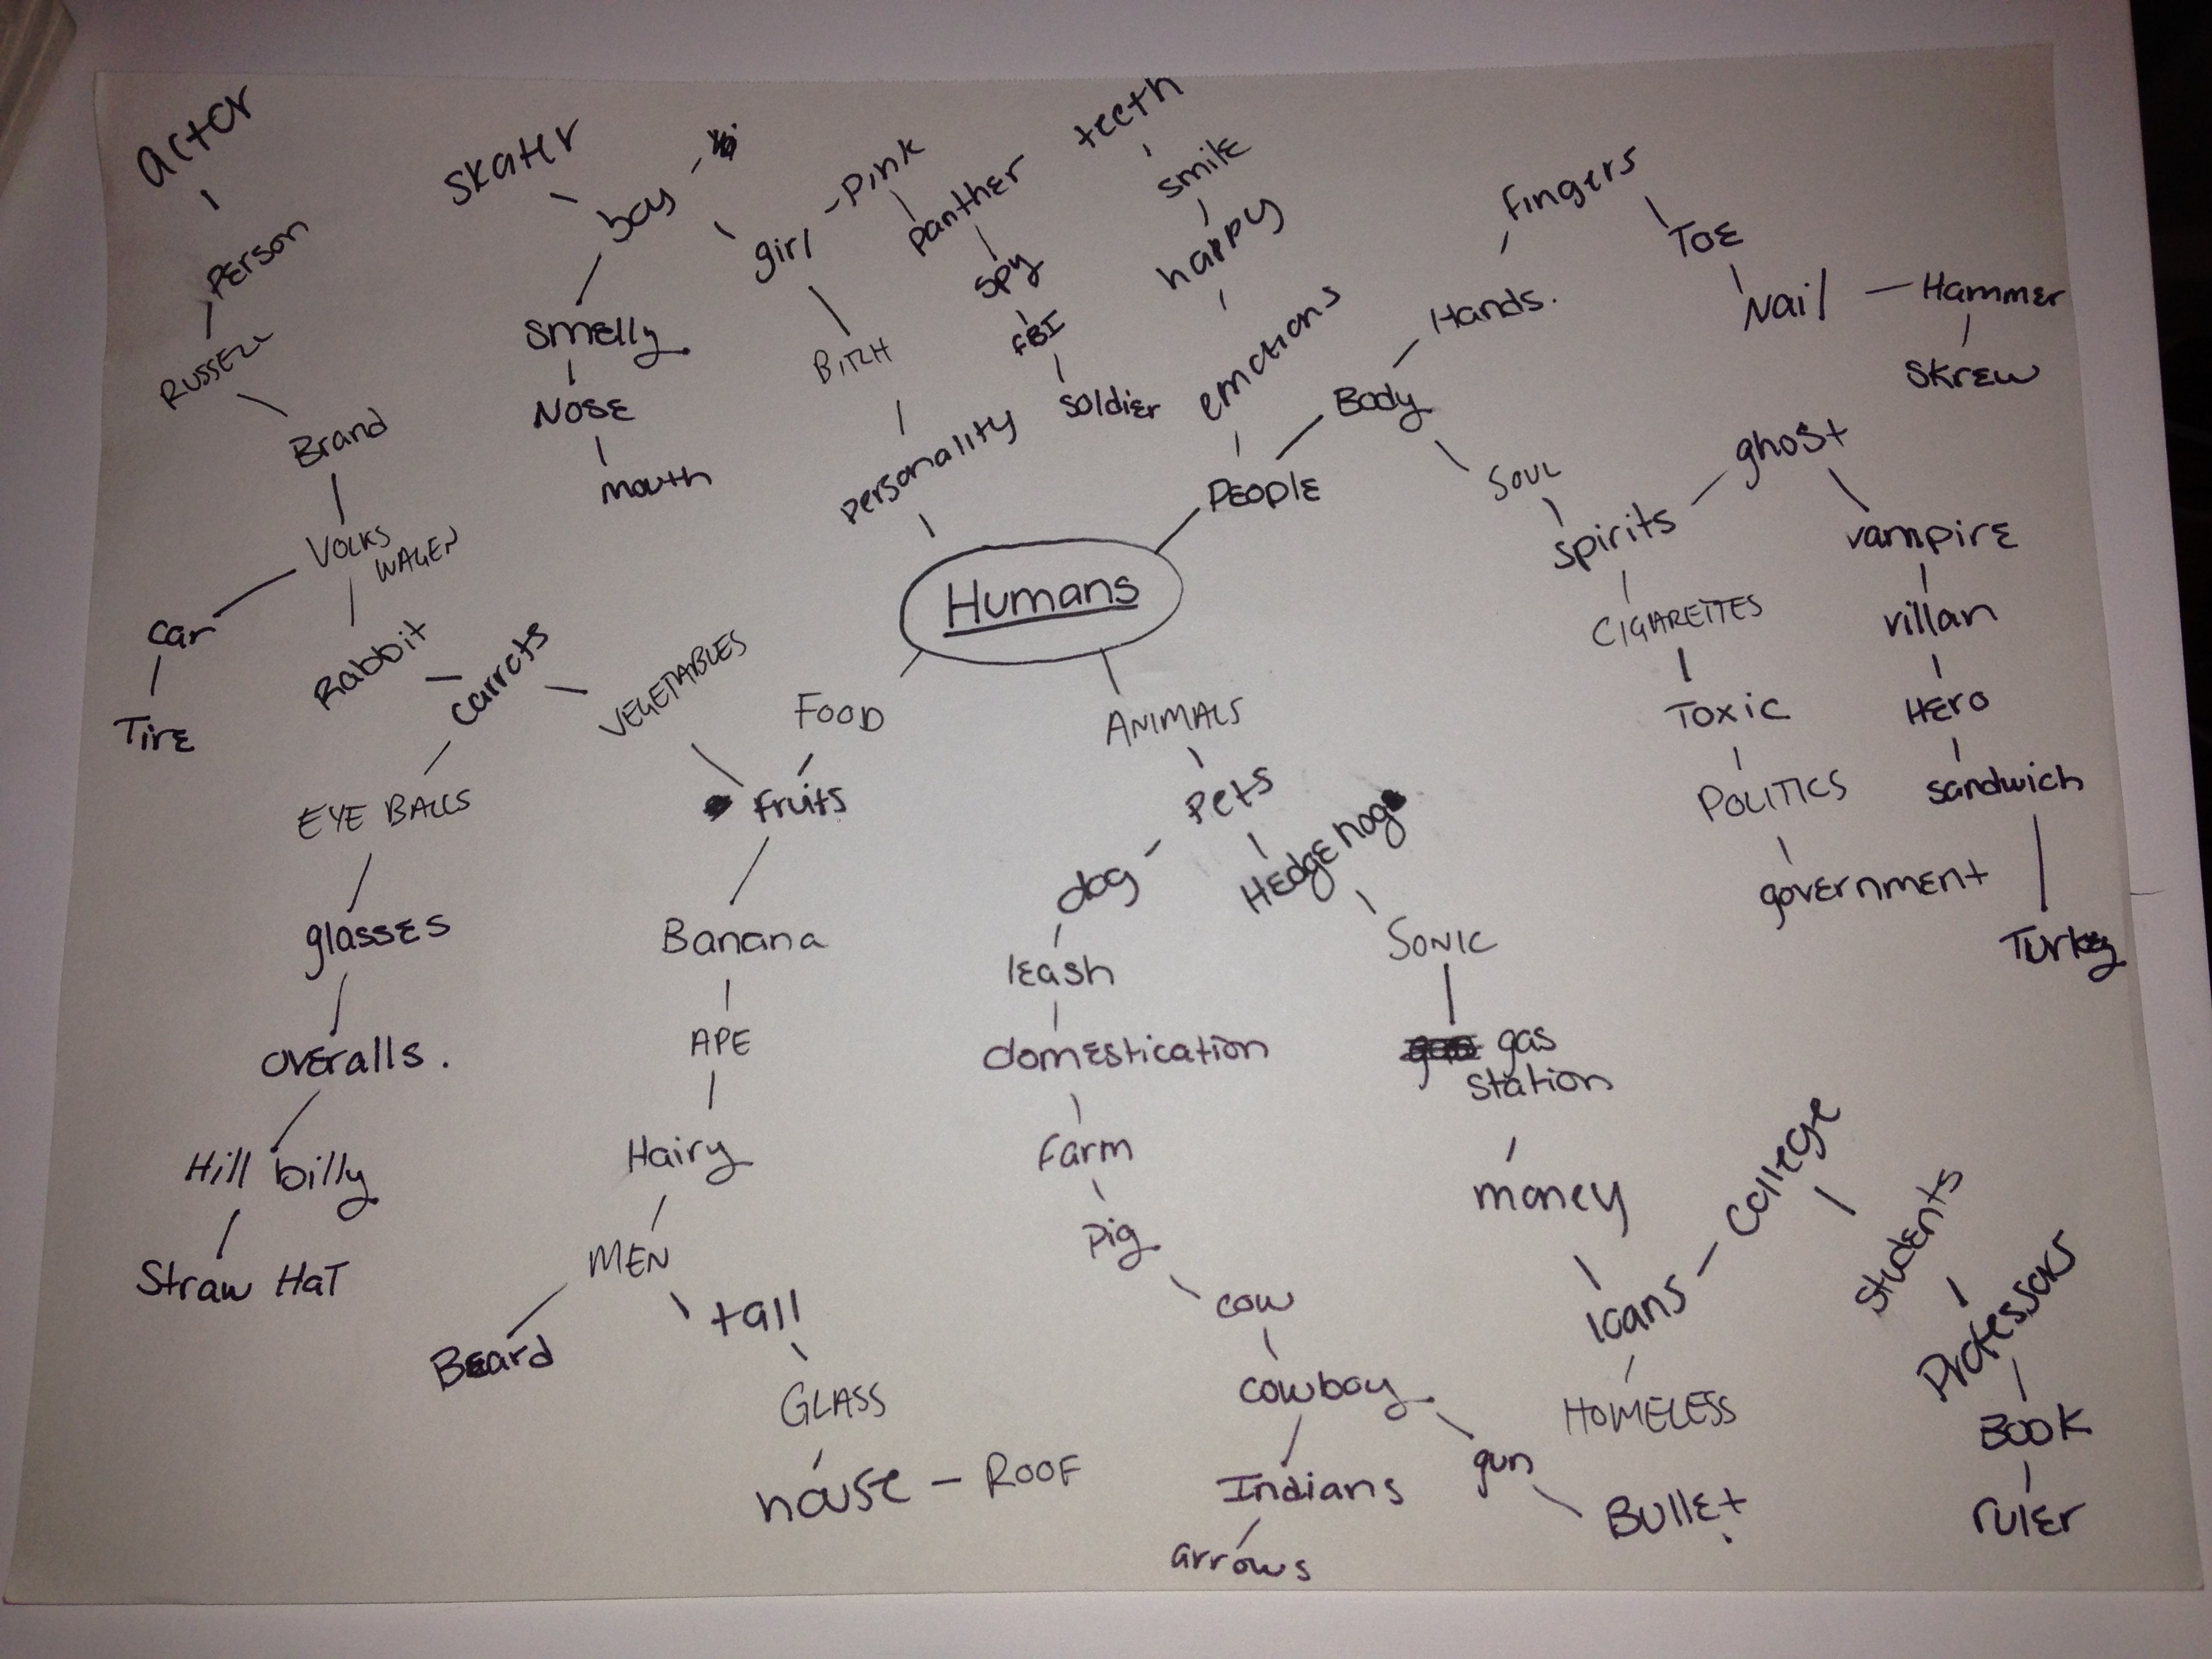 actor
Person
RUSSELL
Brand
VOLKS
WAGEN
car
Tire
Rabbit
carrots
VEGETABLES
EYE BALLS
glasses
overalls.
Hill billy
Straw HaT
skater
boy
smelly
NOSE
mouth
girl
Pink
panther
spy
FBI
soldier
BITCH
personality
Humans
teeth
smile
happy
emotions
PEOPLE
Body
Hands.
fingers
TOE
Nail
Hammer
Skrew
SOUL
spirits
ghost
vampire
villan
HEro
sandwich
Turkey
CIGARETTES
TOXIC
POLITICS
government
FOOD
fruits
Banana
APE
Hairy
MEN
Beard
tall
GLASS
house
ROOF
ANIMALS
Pets
dog
leash
domestication
farm
pig
cow
cowboy
Indians
arrows
gun
Bullet
Hedgehog
SONIC
gas
station
money
loans
HOMELESS
college
students
Professors
BOOK
ruler